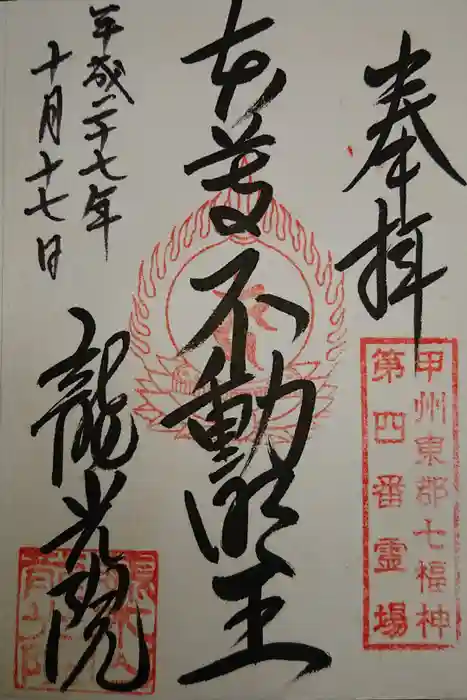 奉拝
甲州東郡七福神
第四番霊場
本尊不動明王
平成二十七年
十月十七日
龍光院